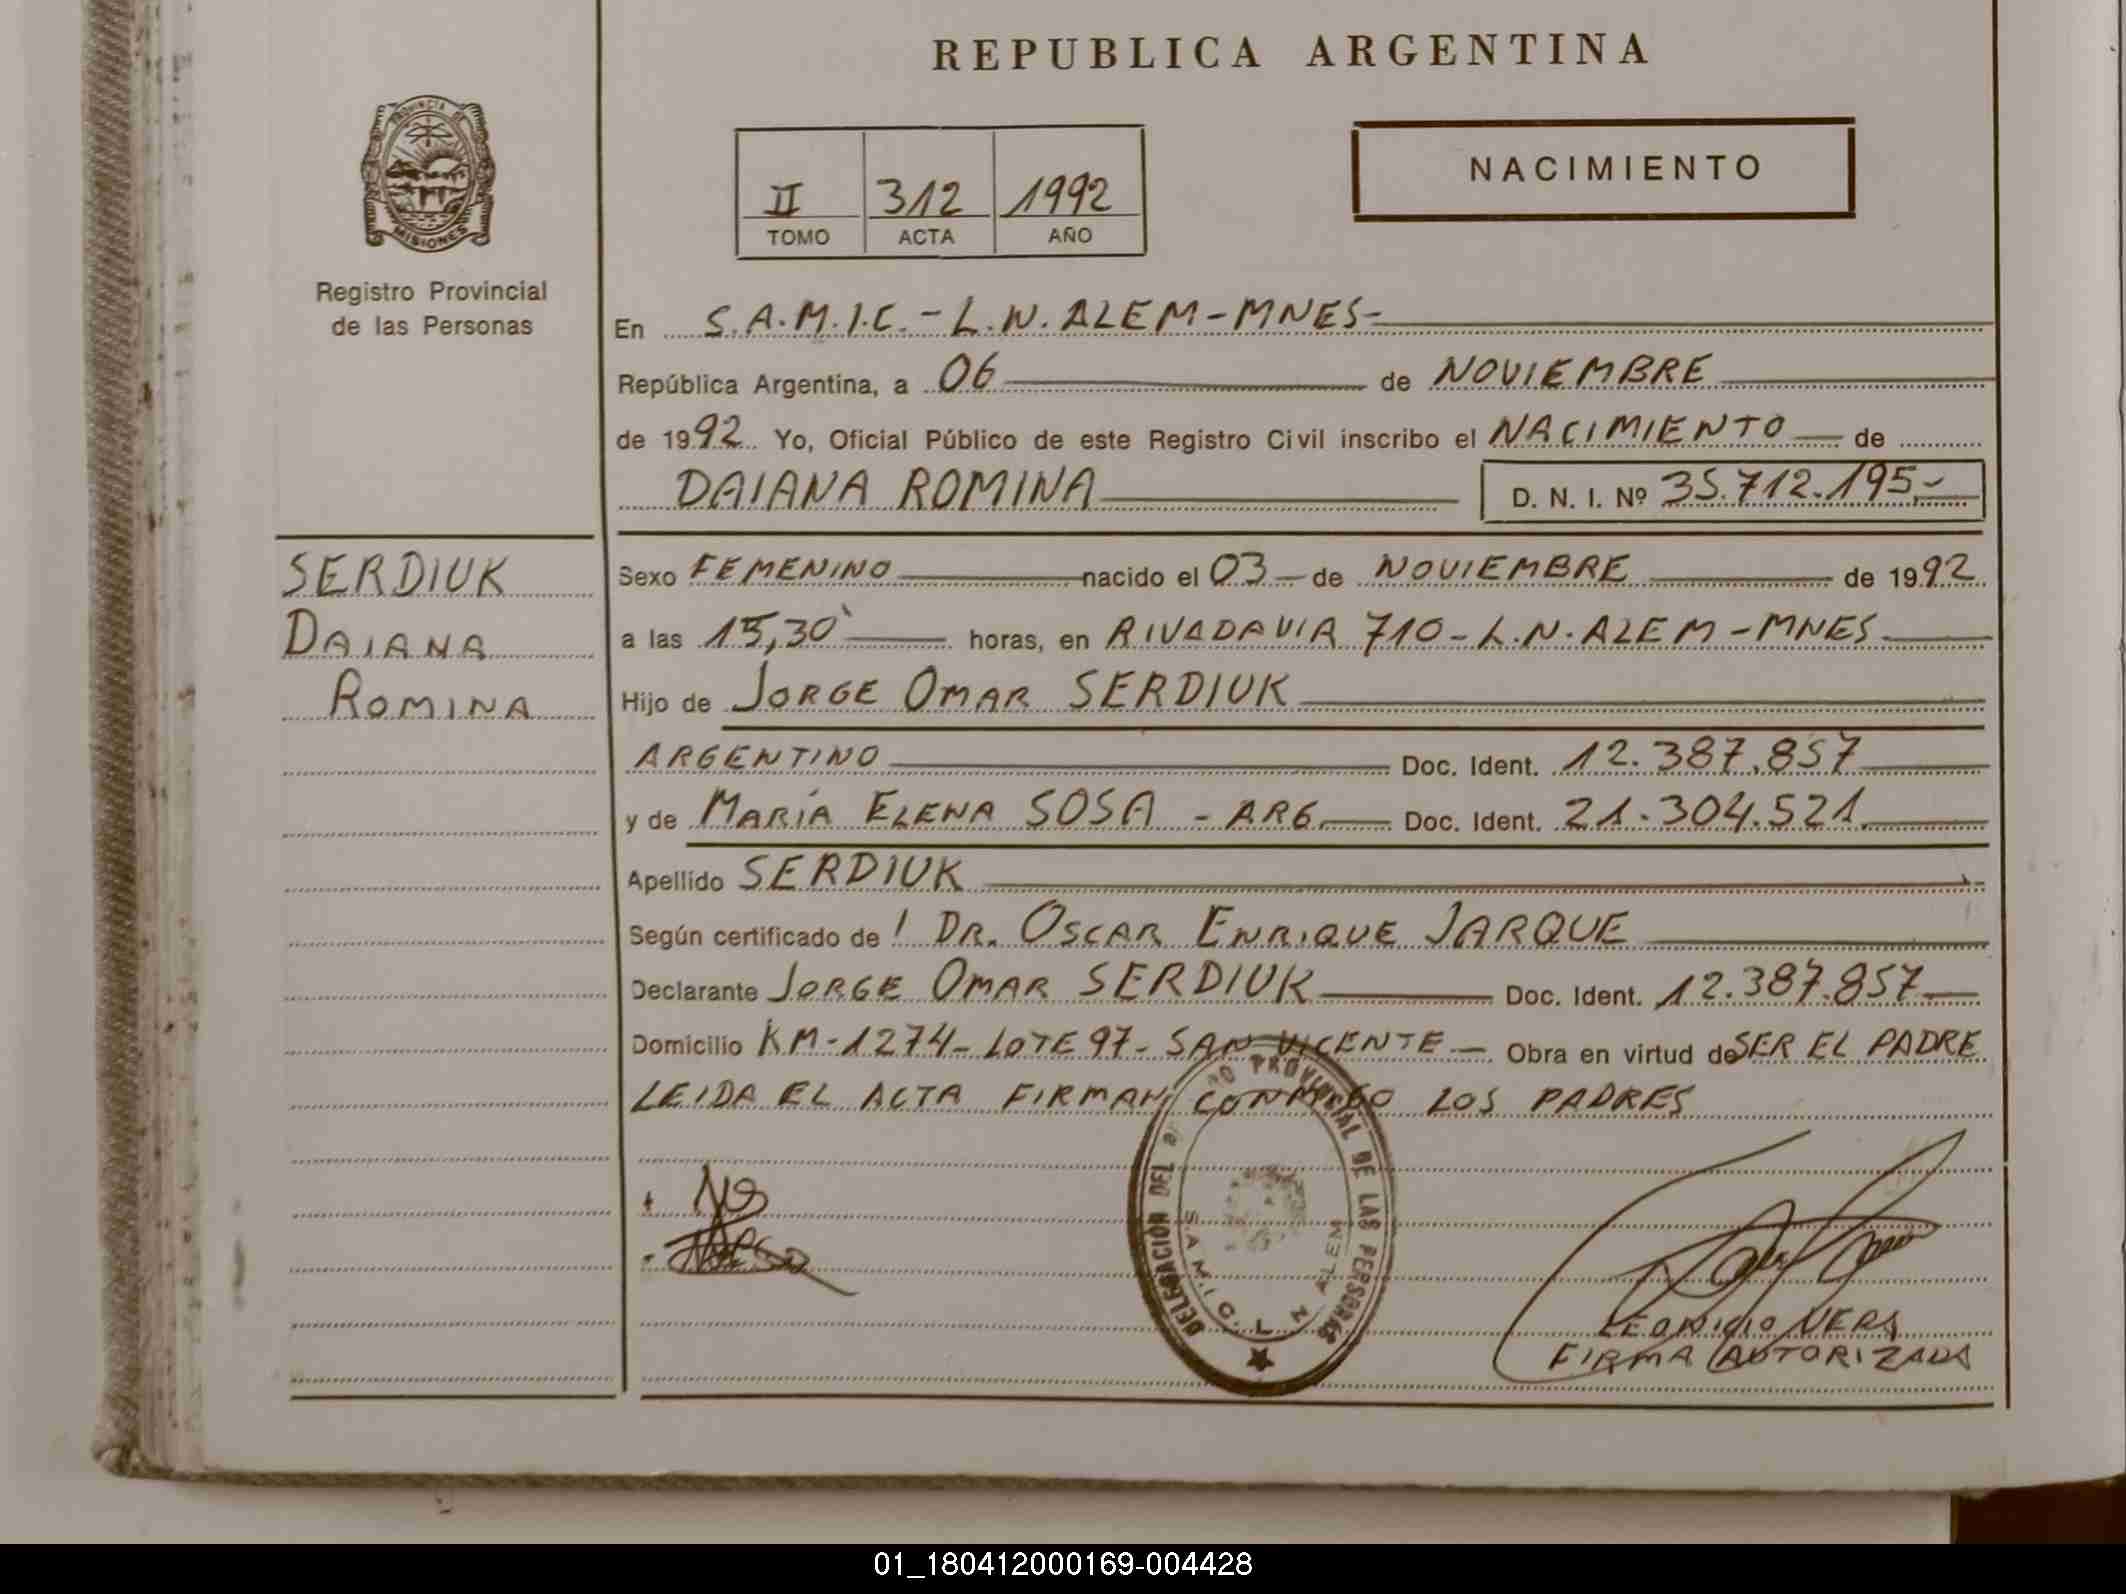 REPUBLICA ARGENTINA
PROVINCIA DE
MISIONES
Registro Provincial
de las Personas
II 312 1992
TOMO ACTA AÑO
NACIMIENTO
En S.A.M.I.C.-L.N.ALEM-MNES-
República Argentina, a 06 de NOVIEMBRE
de 1992 Yo, Oficial Público de este Registro Civil inscribo el NACIMIENTO de
DAIANA ROMINA D. N. I. Nº 35.712.195.-
SERDIUK
DAIANA
ROMINA
Sexo FEMENINO nacido el 03 de NOVIEMBRE de 1992
a las 15,30 horas, en RIVADAVIA 710-L.N.ALEM-MNES
Hijo de JORGE OMAR SERDIUK
ARGENTINO Doc. Ident. 12.387.857
y de MARÍA ELENA SOSA - ARG. Doc. Ident. 21.304.521.
Apellido SERDIUK
Según certificado de DR. OSCAR ENRIQUE JARQUE
Declarante JORGE OMAR SERDIUK Doc. Ident. 12.387.857
Domicilio KM-1274-LOTE 97-SAN VICENTE Obra en virtud de SER EL PADRE
LEIDA EL ACTA FIRMAN CONMIGO LOS PADRES
DELEGACION DEL PROVINCIAL DE LAS PERSONAS
S.A.M.I.C. L N ALEM
FIRMA AUTORIZADA
01_180412000169-004428